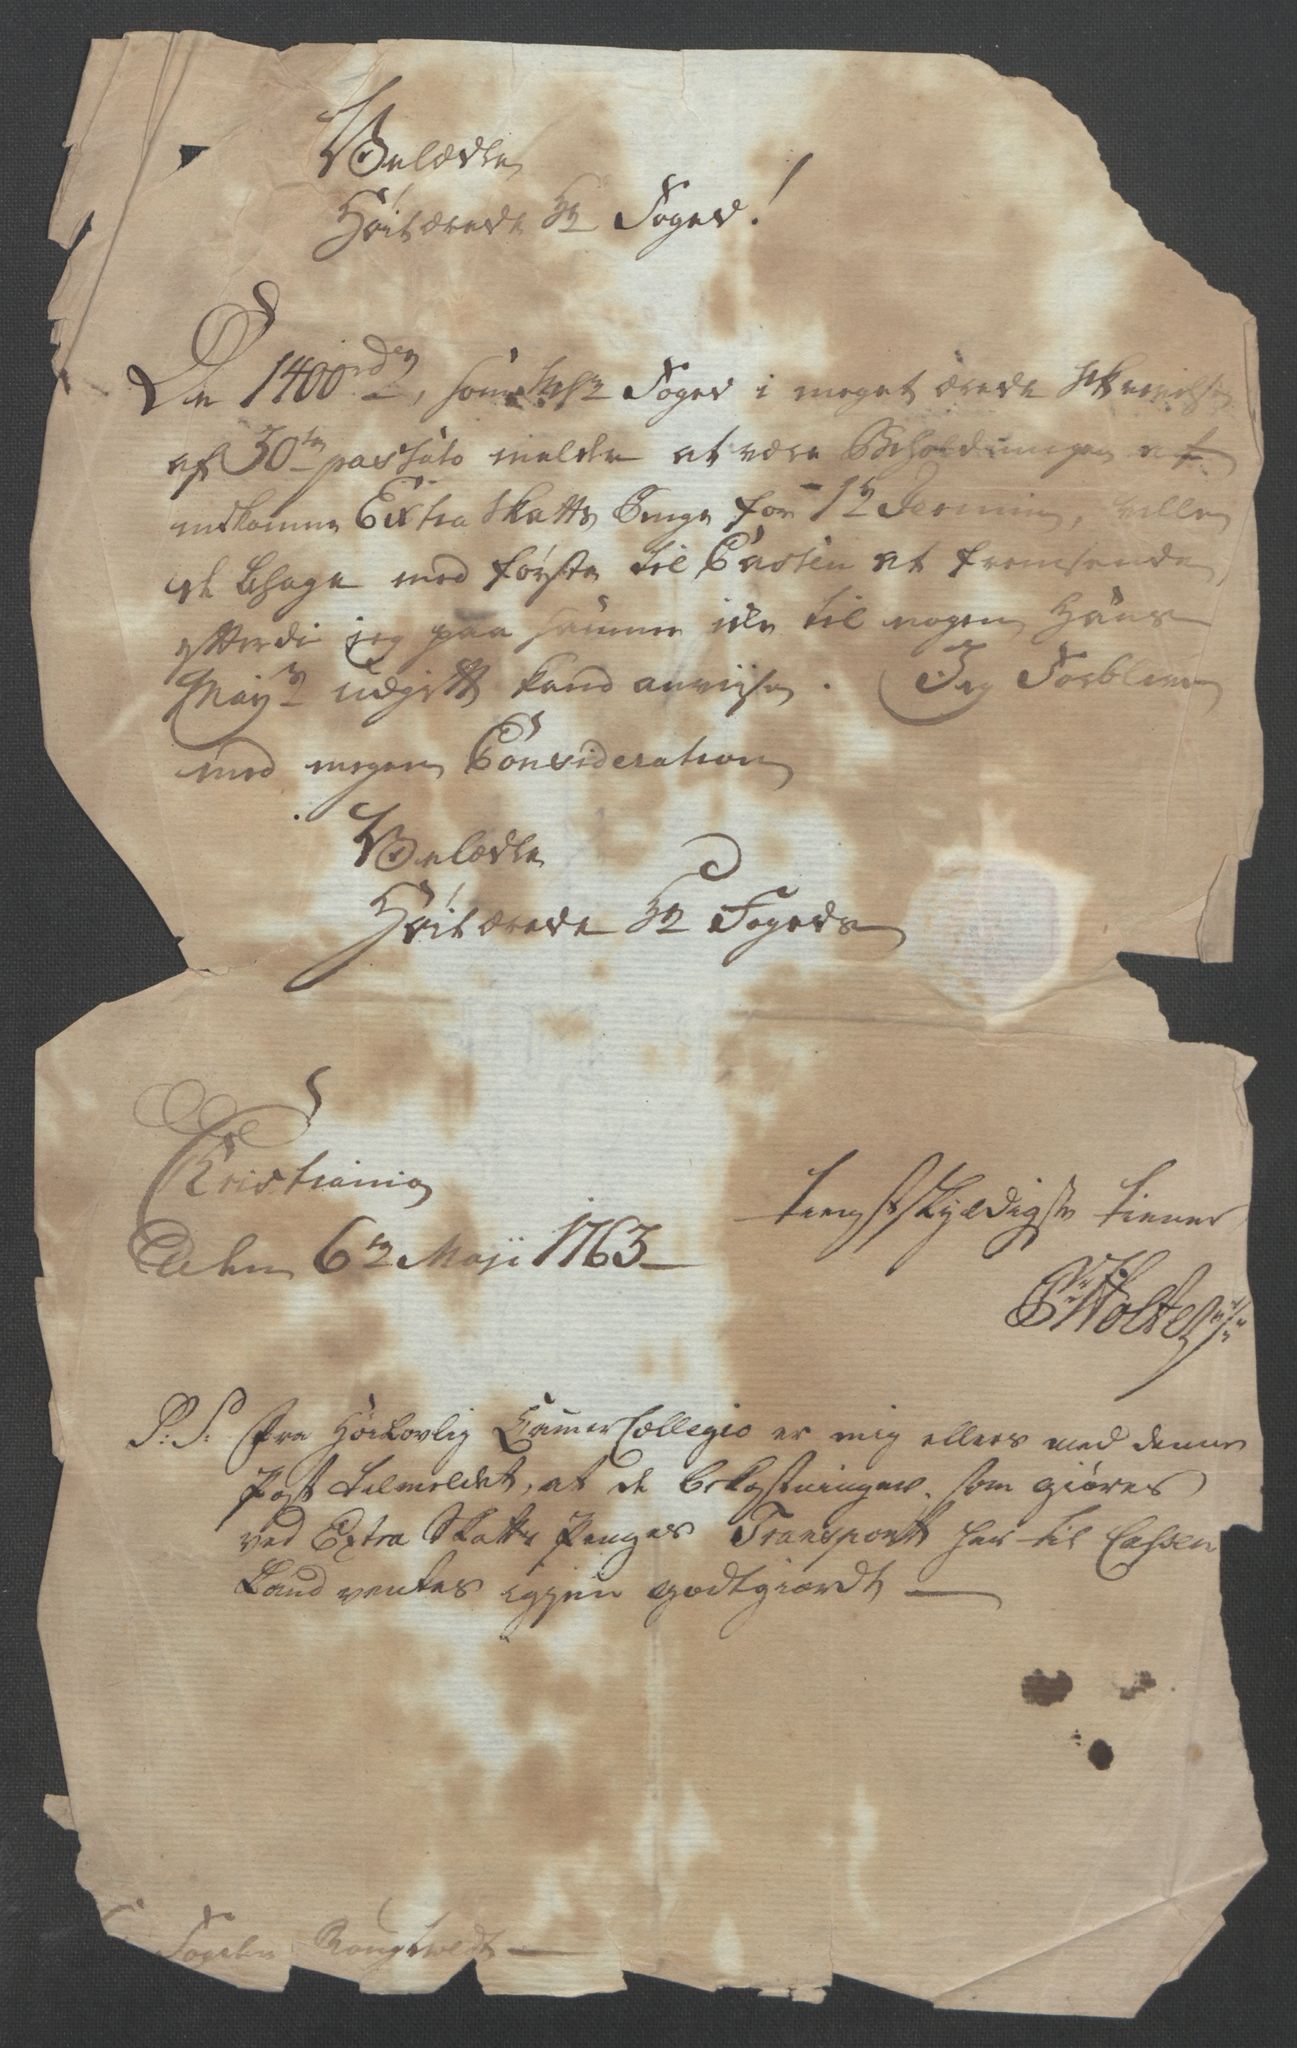 Velædle
Høitærede Hr Foged!
De 1400 rdr, som Hr Foged i meget ærede skrivelse
af 30te passato melder at være Beholdningen af
indkomne Extra Skatts Penge for 1te Termin, ville
de behage med første til Casten at fremsende,
efterdi jeg paa samme icke til nogen Hans
Mayts udgift kand anvise. Jeg Forbliver
med megen Consideration
Velædle
Høitærede Hr Fogeds
Christiania
Dehn 6te Maji 1763
tienstskyldigste tiener
Holte
P.S. Fra Høilovlig Cammer Collegio er mig ellers med denne
Post tilmeldet, at de bekostninger, som giøres
ved Extra Skatts Penges Transportt her til Cassen
kand ventes igjen godtgiordt
Fogden Rougtwedt